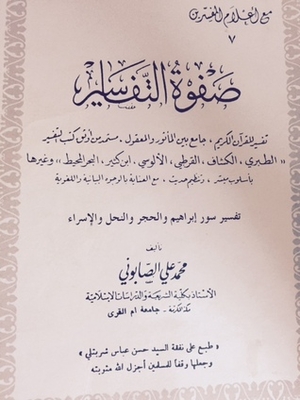 مع أعلام المفسرين
٧
صفوة التفاسير
تفسير للقرآن الكريم ، جامع بين المأثور والمعقول . مستمد من أوثق كتب التفسير
"الطبري ، الكشاف ، القرطبي ، الألوسي ، ابن كثير ، البحر المحيط" وغيرها
بأسلوب ميسر ، وتنظيم حديث ، مع العناية بالوجوه البيانية واللغوية
تفسير سور إبراهيم والحجر والنحل والإسراء
تأليف
محمد علي الصابوني
الأستاذ بكلية الشريعة والدراسات الإسلامية
مكة المكرمة - جامعة ام القرى
« طبع على نفقة السيد حسن عباس شربتلي »
وجعلها وقفاً للمسلمين أجزل الله مثوبته